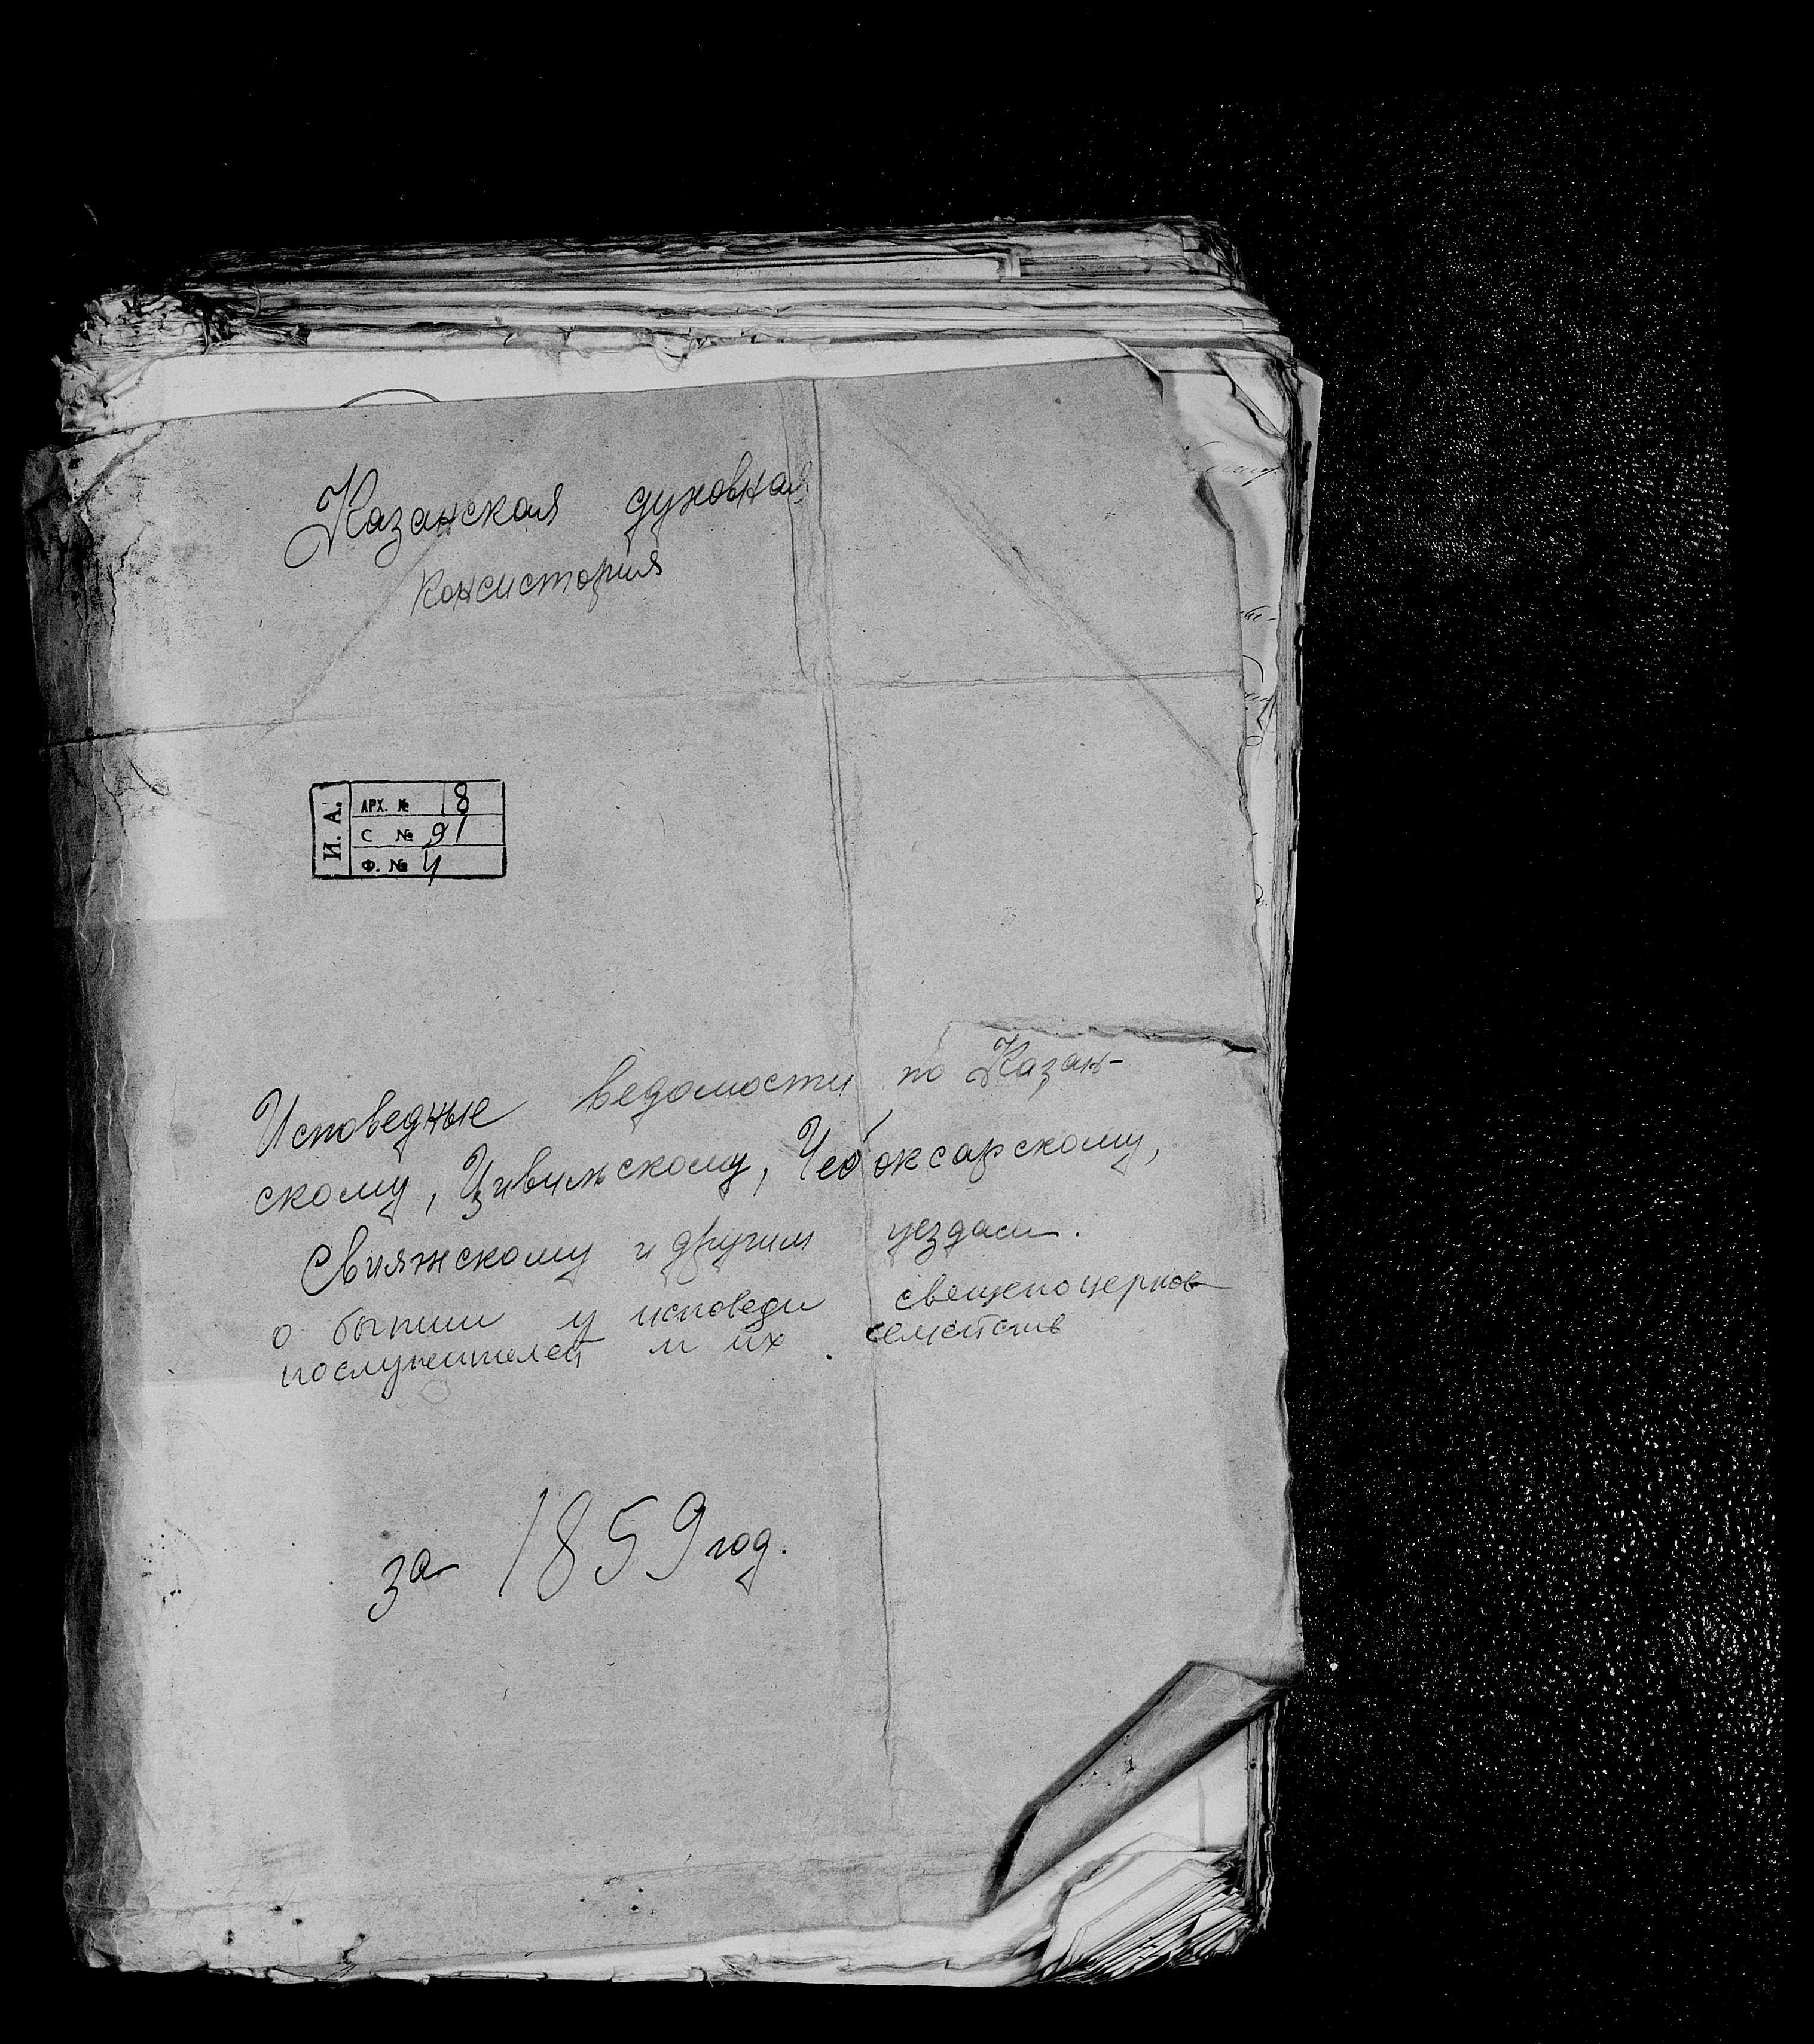 Казанская духовная
консистория
И. А.
АРХ. № 18
С № 91
Ф. № 4
Исповедные ведомости по Казан-
скому, Цивильскому, Чебоксарскому,
Свияжскому и другим уездам.
о бытии у исповеди свещеноцерков
нослужителей и их семейств
за 1859 год.